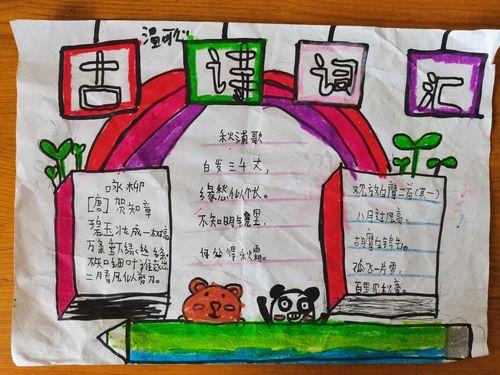 温歌
古
诗
词
汇
咏柳
[唐] 贺知章
碧玉壮成一树高
万条垂下绿丝绦
不知细叶谁裁出
二月春风似剪刀。
秋浦歌
白发三千丈,
缘愁似个长。
不知明镜里,
何处得秋霜。
观放白鹰二首(其一)
八月边风高,
胡鹰白锦毛。
孤飞一片雪,
百里见秋毫。